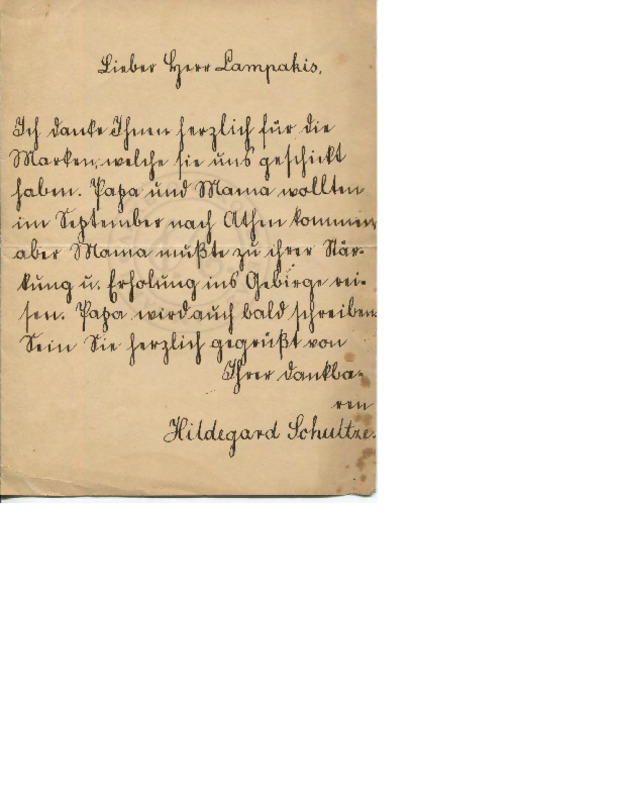 Lieber Herr Lampakis,
Ich danke Ihnen herzlich für die
Marken, welche sie uns geschickt
haben. Papa und Mama wollten
im September nach Athen kommen,
aber Mama mußte zu ihrer Stär-
kung u. Erholung ins Gebirge rei-
sen. Papa wird auch bald schreiben.
Sein Sie herzlich gegrüßt von
Ihrer dankba-
ren
Hildegard Schultze.